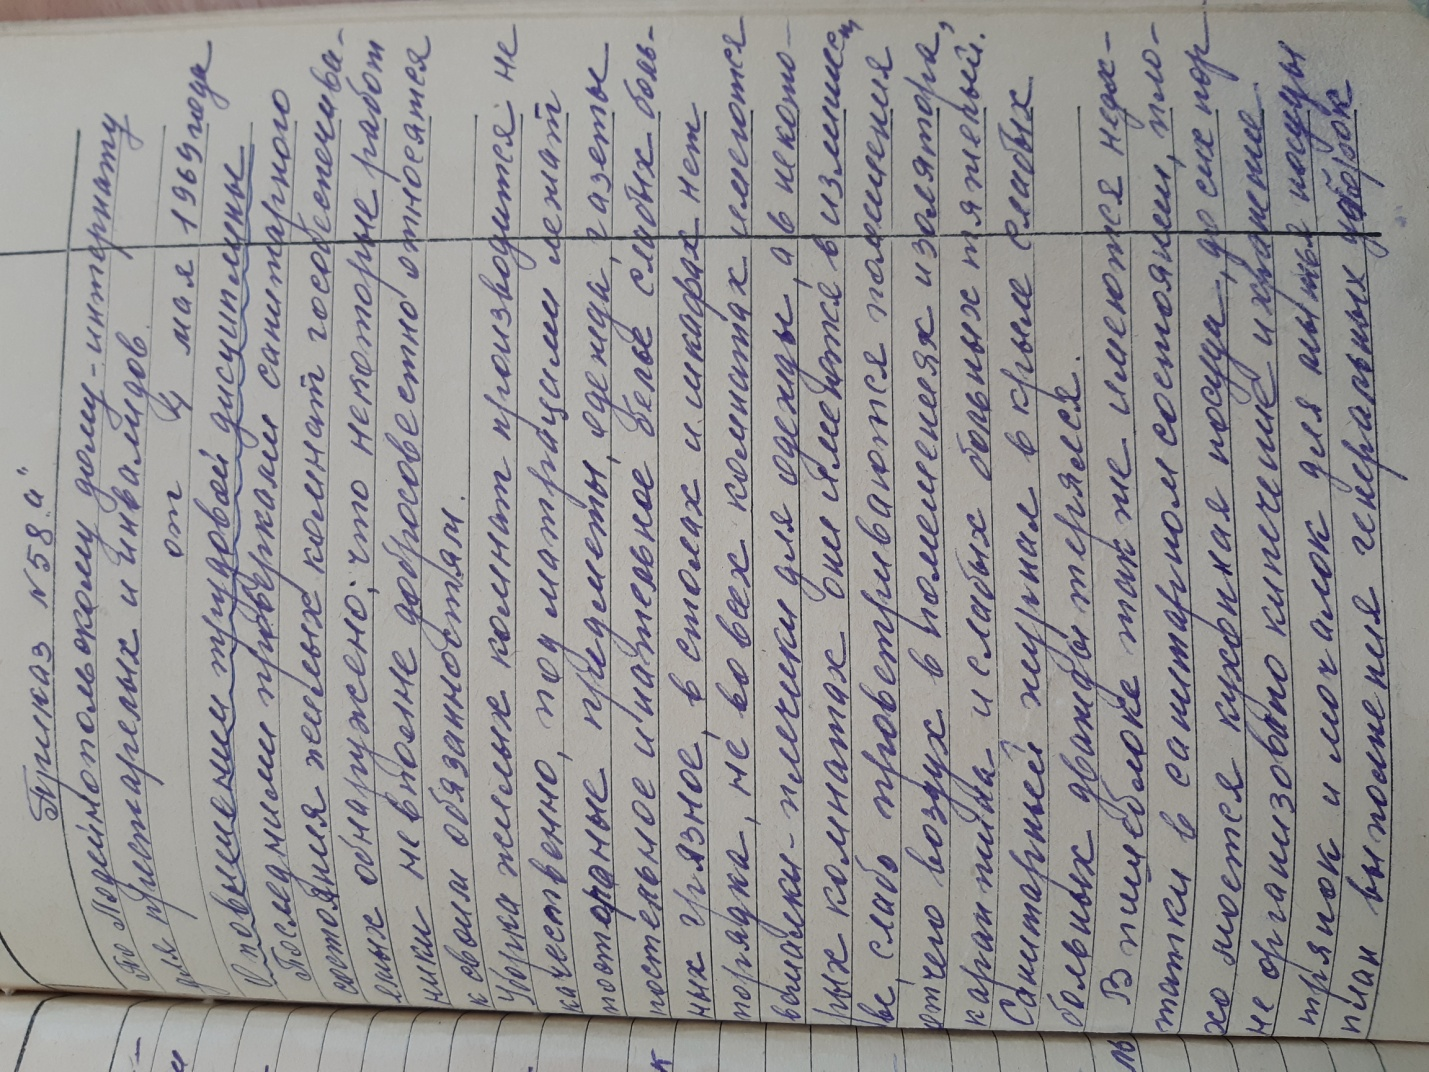 Приказ №58 „а"
По Подеймопольскому дому-интернату
для престарелых и инвалидов.
от 4 мая 1969 года
О повышении трудовой дисциплины
Последними проверками санитарного
состояния жилых комнат гособеспечива-
емых обнаружено, что некоторые работ
ники не вполне добросовестно относятся
к своим обязанностям.
Уборка жилых комнат производится не
качественно, под матрацами лежат
посторонние предметы, одежда, газеты
постельное и нательное бельё слабых боль-
ных грязное, в столах и шкафах нет
порядка, не во всех комнатах имеются
вешалки-плечики для одежды, а в некото-
рых комнатах они имеются в излишест
ве, слабо проветриваются помещения
отчего воздух в помещениях изолятора,
карантина и слабых больных тяжелый.
Санитарный журнал в крыле слабых
больных дважды терялся.
В пищеблоке так же имеются недос-
татки в санитарном состоянии, пло-
хо моется кухонная посуда, до сих пор
не организовано кипячение и хранение
тряпок и мочалок для мытья посуды
план выполнения генеральных уборок